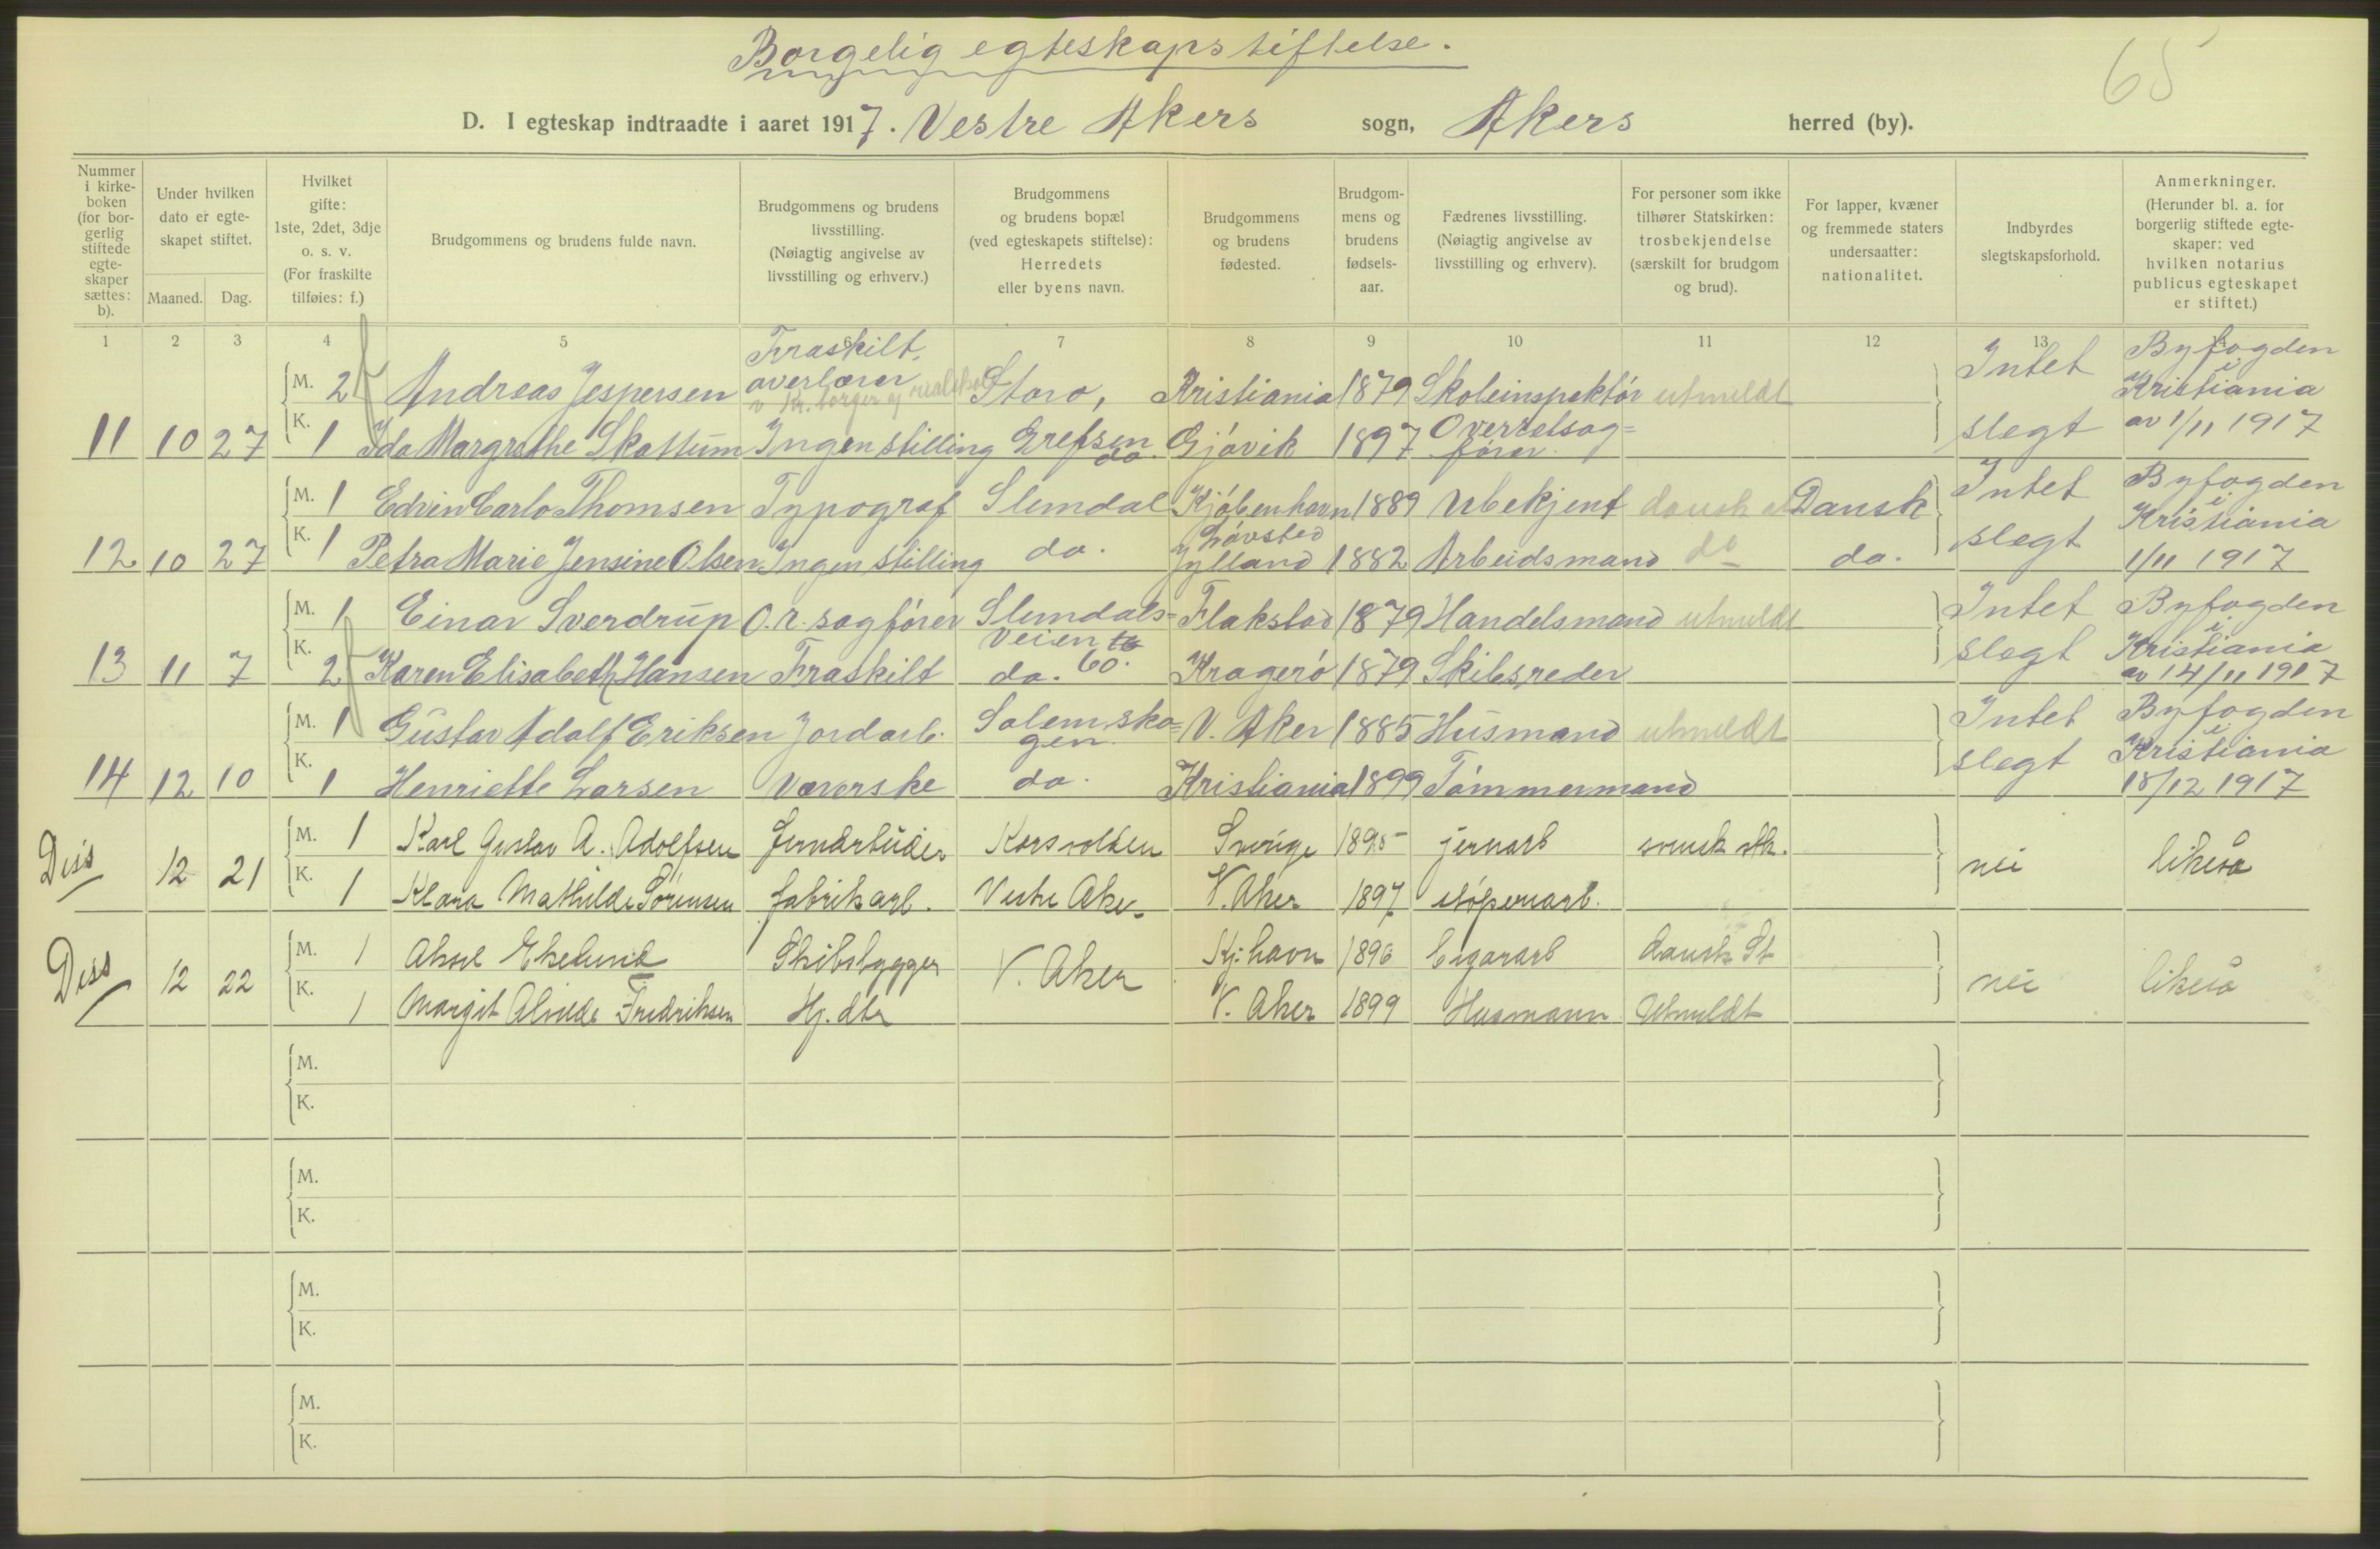 Borgelig egteskapstiftelse.
65
D. I egteskap indtraadte i aaret 1917. Vestre Akers sogn, Akers herred (by).
Nummer i kirke-boken (for bor-gerlig stiftede egte-skaper sættes: b).
Under hvilken dato er egte-skapet stiftet.
Maaned. Dag.
Hvilket gifte: 1ste, 2det, 3dje o. s. v. (For fraskilte tilføies: f.)
Brudgommens og brudens fulde navn.
Brudgommens og brudens livsstilling. (Nøiagtig angivelse av livsstilling og erhverv.)
Brudgommens og brudens bopæl (ved egteskapets stiftelse): Herredets eller byens navn.
Brudgommens og brudens fødested.
Brudgom-mens og brudens fødsels-aar.
Fædrenes livsstilling. (Nøiagtig angivelse av livsstilling og erhverv).
For personer som ikke tilhører Statskirken: trosbekjendelse (særskilt for brudgom og brud).
For lapper, kvæner og fremmede staters undersaatter: nationalitet.
Indbyrdes slegtskapsforhold.
Anmerkninger. (Herunder bl. a. for borgerlig stiftede egte-skaper: ved hvilken notarius publicus egteskapet er stiftet.)
1 2 3 4 5 6 7 8 9 10 11 12 13 14
M. 2 f Andreas Jespersen Fraskilt, overlærer Storo, Kristiania 1879 Skoleinspektør utmeldt Intet Byfogden i Kristiania
11 10 27 K. 1 Ida Margrethe Skattum Ingen stilling Grefsen do. Gjøvik 1897 Overretsag=fører. slegt av 1/11 1917
M. 1 Edvin Carlo Thomsen Typograf Slemdal Kjøbenhavn 1889 Ubekjent dansk Dansk Intet Byfogden i Kristiania
12 10 27 K. 1 Petra Marie Jensine Olsen Ingen stilling do. Løvsted Jylland 1882 Arbeidsmand do do. slegt 1/11 1917
M. 1 Einar Sverdrup O.r. sagfører Slemdals=veien 60. Flakstad 1879 Handelsmand utmeldt Intet Byfogden i Kristiania
13 11 7 K. 2 f Karen Elisabeth Hansen Fraskilt do. Kragerø 1879 Skibsreder slegt av 14/11 1917
M. 1 Gustav Adolf Eriksen Jordarb. Solemsko=gen. V. Aker 1885 Husmand utmeldt Intet Byfogden i Kristiania
14 12 10 K. 1 Henriette Larsen Væverske do. Kristiania 1899 Tømmermand slegt 18/12 1917
Diss 12 21 M. 1 Karl Gustav A. Adolfsen Jernarbeider Korsvolden Sverige 1895 jernarb svensk stk. nei likeså
K. 1 Klara Mathilde Sørensen fabrikarb. Vestre Aker V. Aker 1897 støperiarb.
Diss 12 22 M. 1 Aksel Ekelund Skibsbygger V. Aker Kj.havn 1896 Cigararb dansk St nei likeså
K. 1 Margit Alvilde Fredriksen Hj. dtr V. Aker 1899 Husmann Utmeldt
M.
K.
M.
K.
M.
K.
M.
K.